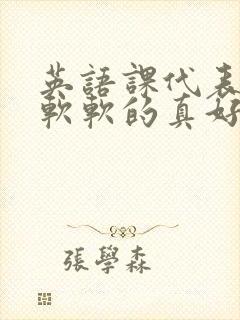 英語課代表
軟軟的真好
張學森